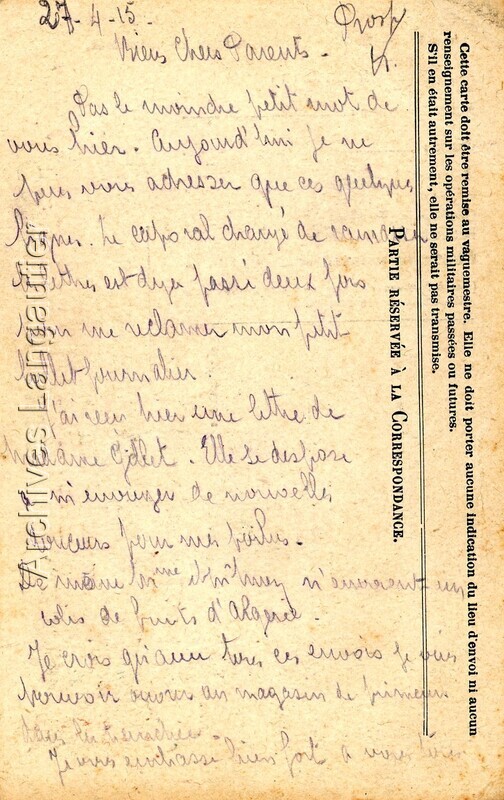 27-4-15.
Biens Chers Parents.
Pas le moindre petit mot de
vous hier. Aujourd'hui je ne
puis vous adresser que ces quelques
lignes. Le caporal chargé de
lettres est deja passé deux fois
me reclamer mon petit
billet journalier.
J'ai reçu hier une lettre de
Madame. Elle se dispose
à m'envoyer de nouvelles
pour mes poilus.
De même Mme et Mr m'envoient un
colis de fruits d'Algerie.
Je crois qu'avec tous ces envois je vais
pouvoir ouvrir un magasin de primeur
dans les tranchées.
Je vous embrasse bien fort a vous tous
PARTIE RÉSERVÉE À LA CORRESPONDANCE.
Cette carte doit être remise au vaguemestre. Elle ne doit porter aucune indication du lieu d'envoi ni aucun
renseignement sur les opérations militaires passées ou futures.
S'il en était autrement, elle ne serait pas transmise.